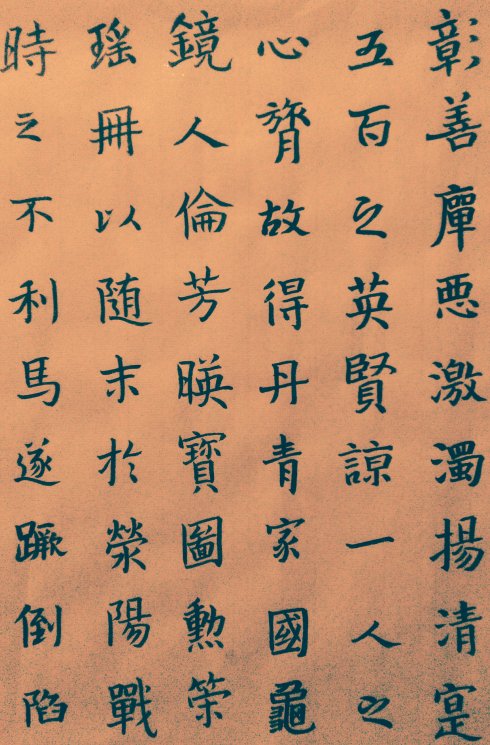 彰善癉悪激濁揚清寔
五百之英賢諒一人之
心膂故得丹青家國龜
鏡人倫芳暎寶圖勲榮
瑶冊以随末於滎陽戰
時之不利馬遂蹶倒陷